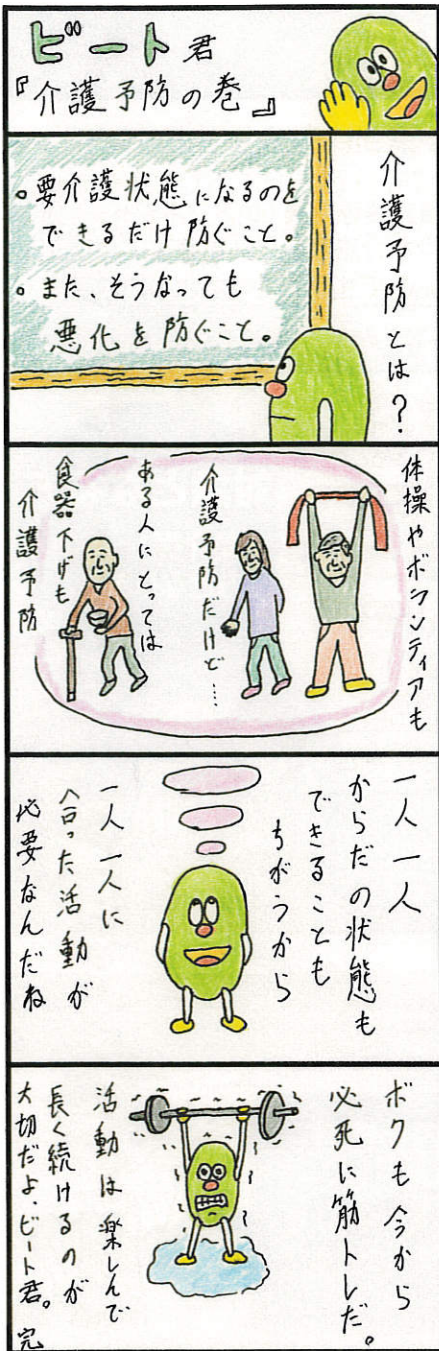 ビート君
『介護予防の巻』
介護予防とは?
。要介護状態になるのを
できるだけ防ぐこと。
。また、そうなっても
悪化を防ぐこと。
体操やボランティアも
介護予防だけど…
ある人にとっては
食器下げも
介護予防
一人一人
からだの状態も
できることも
ちがうから
一人一人に
合った活動が
必要なんだね
ボクも今から
必死に筋トレだ。
活動は楽しんで
長く続けるのが
大切だよ、ビート君。完